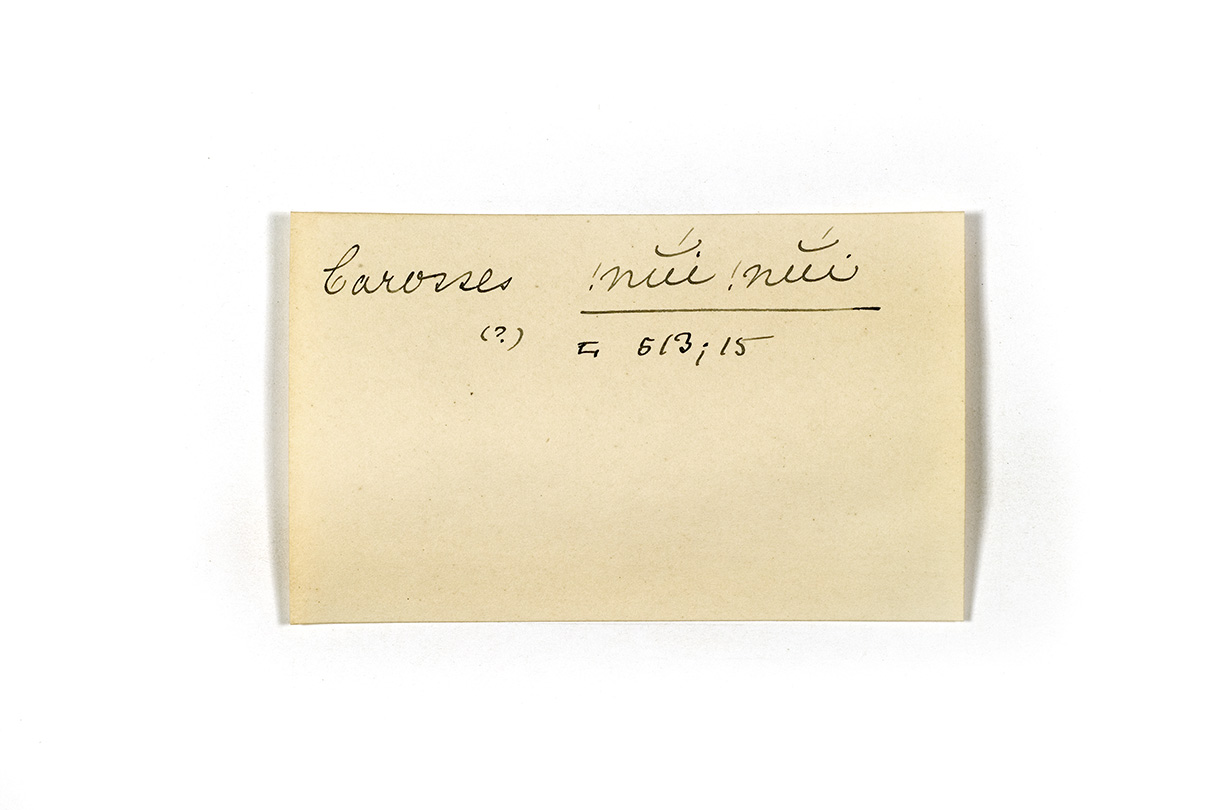 Carosses !nŭ́i !nŭ́i
(?) = 613; 15